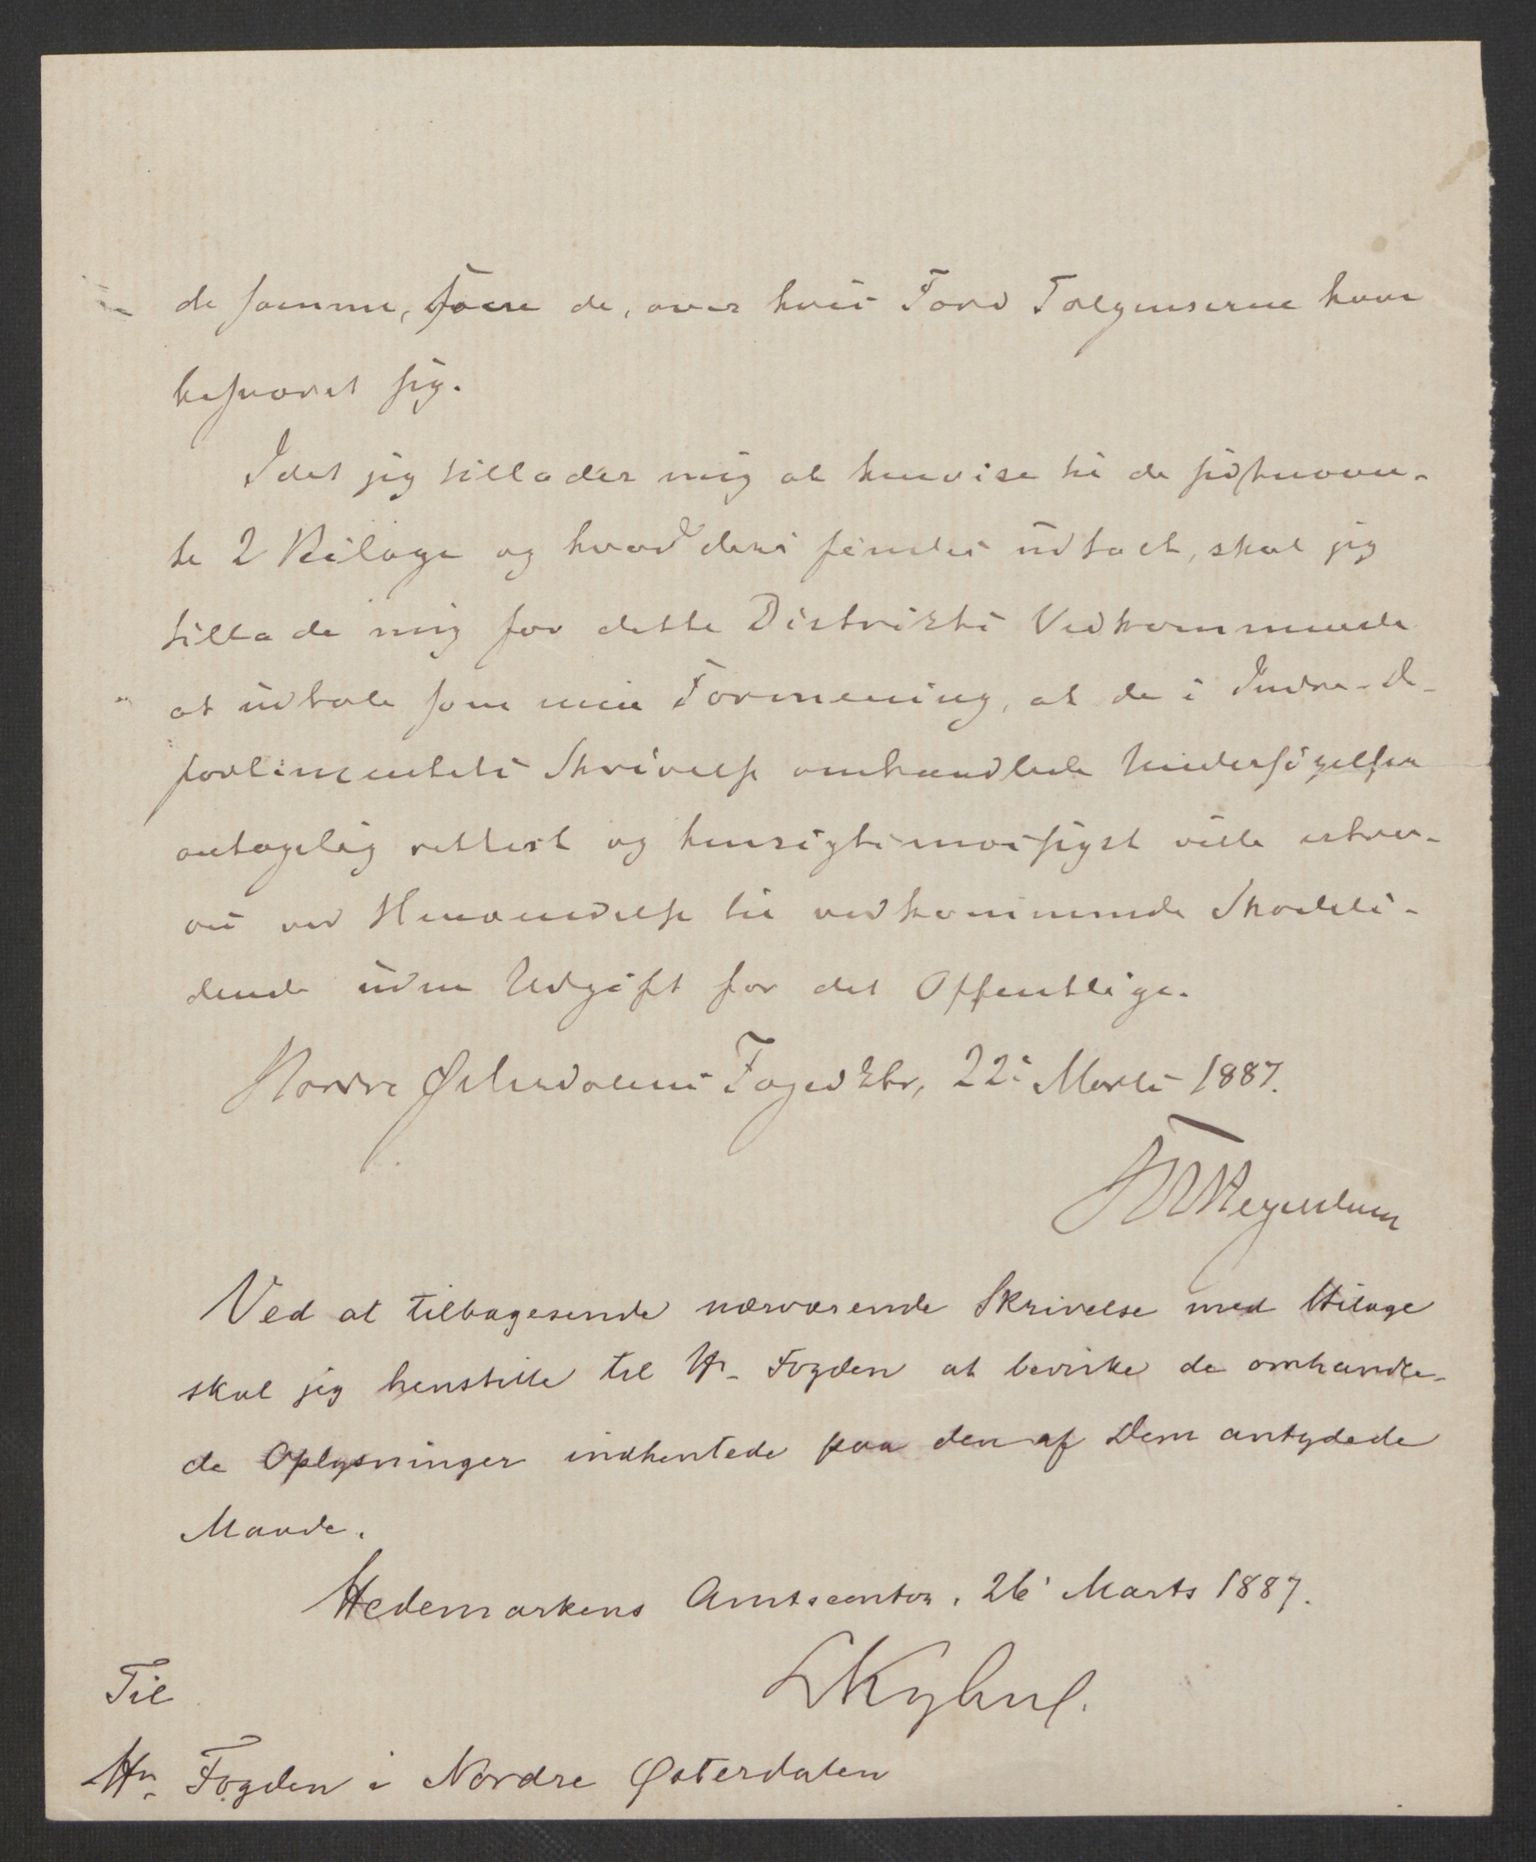 de samme, som de, over hvis Færd Tolgenserne have
besværet sig.
Idet jeg tillader mig at henvise til de sidstnævn-
te 2 Bilage og hvad deri findes udtalt, skal jeg
tillade mig for dette Distrikts Vedkommende
at udtale som min Formening, at de i Indre-De-
partementets Skrivelse omhandlede Undersøgelser
antagelig rettest og hensigtsmæssigst ville
ved Henvendelse til vedkommende Skadeli-
dende uden Udgift for det Offentlige.
Nordre Østerdalens Fogedktr, 22 Marts 1887.
Ved at tilbagesende nærværende Skrivelse med Bilage
skal jeg henstille til Hr. Fogden at bevirke de omhandle-
de Oplysninger indhentede paa den af Dem antydede
Maade.
Hedemarkens Amtscontor, 26 Marts 1887.
Til
Hr. Fogden i Nordre Østerdalen